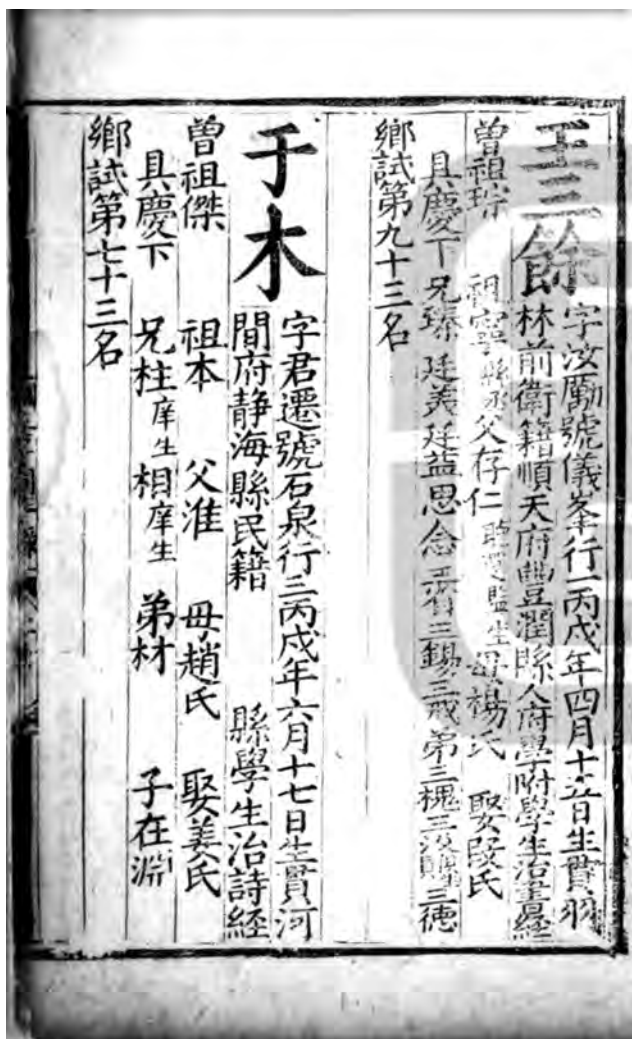 王三餘
字汝勵號儀峯行一丙戌年四月十五日生貫羽
林前衛籍順天府豐潤縣人府學附學生治書經
曾祖琮 祖寧縣丞父存仁 監生母楊氏 娶段氏
具慶下 兄臻 廷美廷益思念 三省三錫三戒弟三槐三汲三德
鄉試第九十三名
于木
字君遷號石泉行三丙戌年六月十七日生貫河
間府靜海縣民籍 縣學生治詩經
曾祖傑 祖本 父淮 母趙氏 娶姜氏
具慶下 兄柱庠生相庠生 弟材 子在淵
鄉試第七十三名